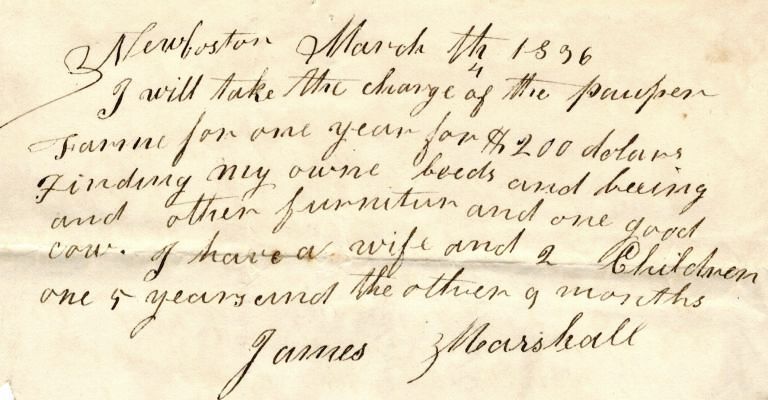 Newboston March th 4 1836
I will take the charge of the pauper
Farme for one year for $200 dolars
Finding my owne beeds and beeing
and other furnitur and one good
cow. I have a wife and 2 Children
one 5 years and the other 9 months
James Marshall